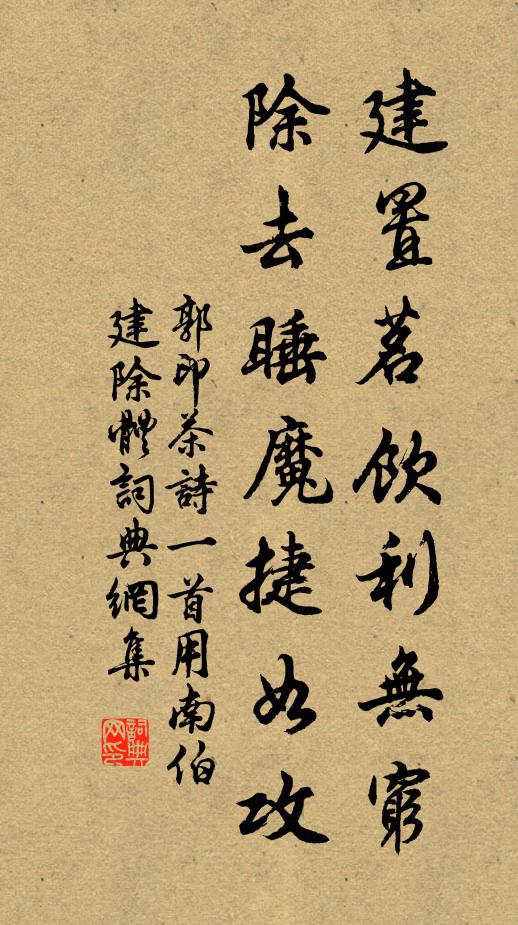 建置茗飲利無窮
除去睡魔捷如攻
郭印茶詩一首用南伯
建除體詞典網集
詞典